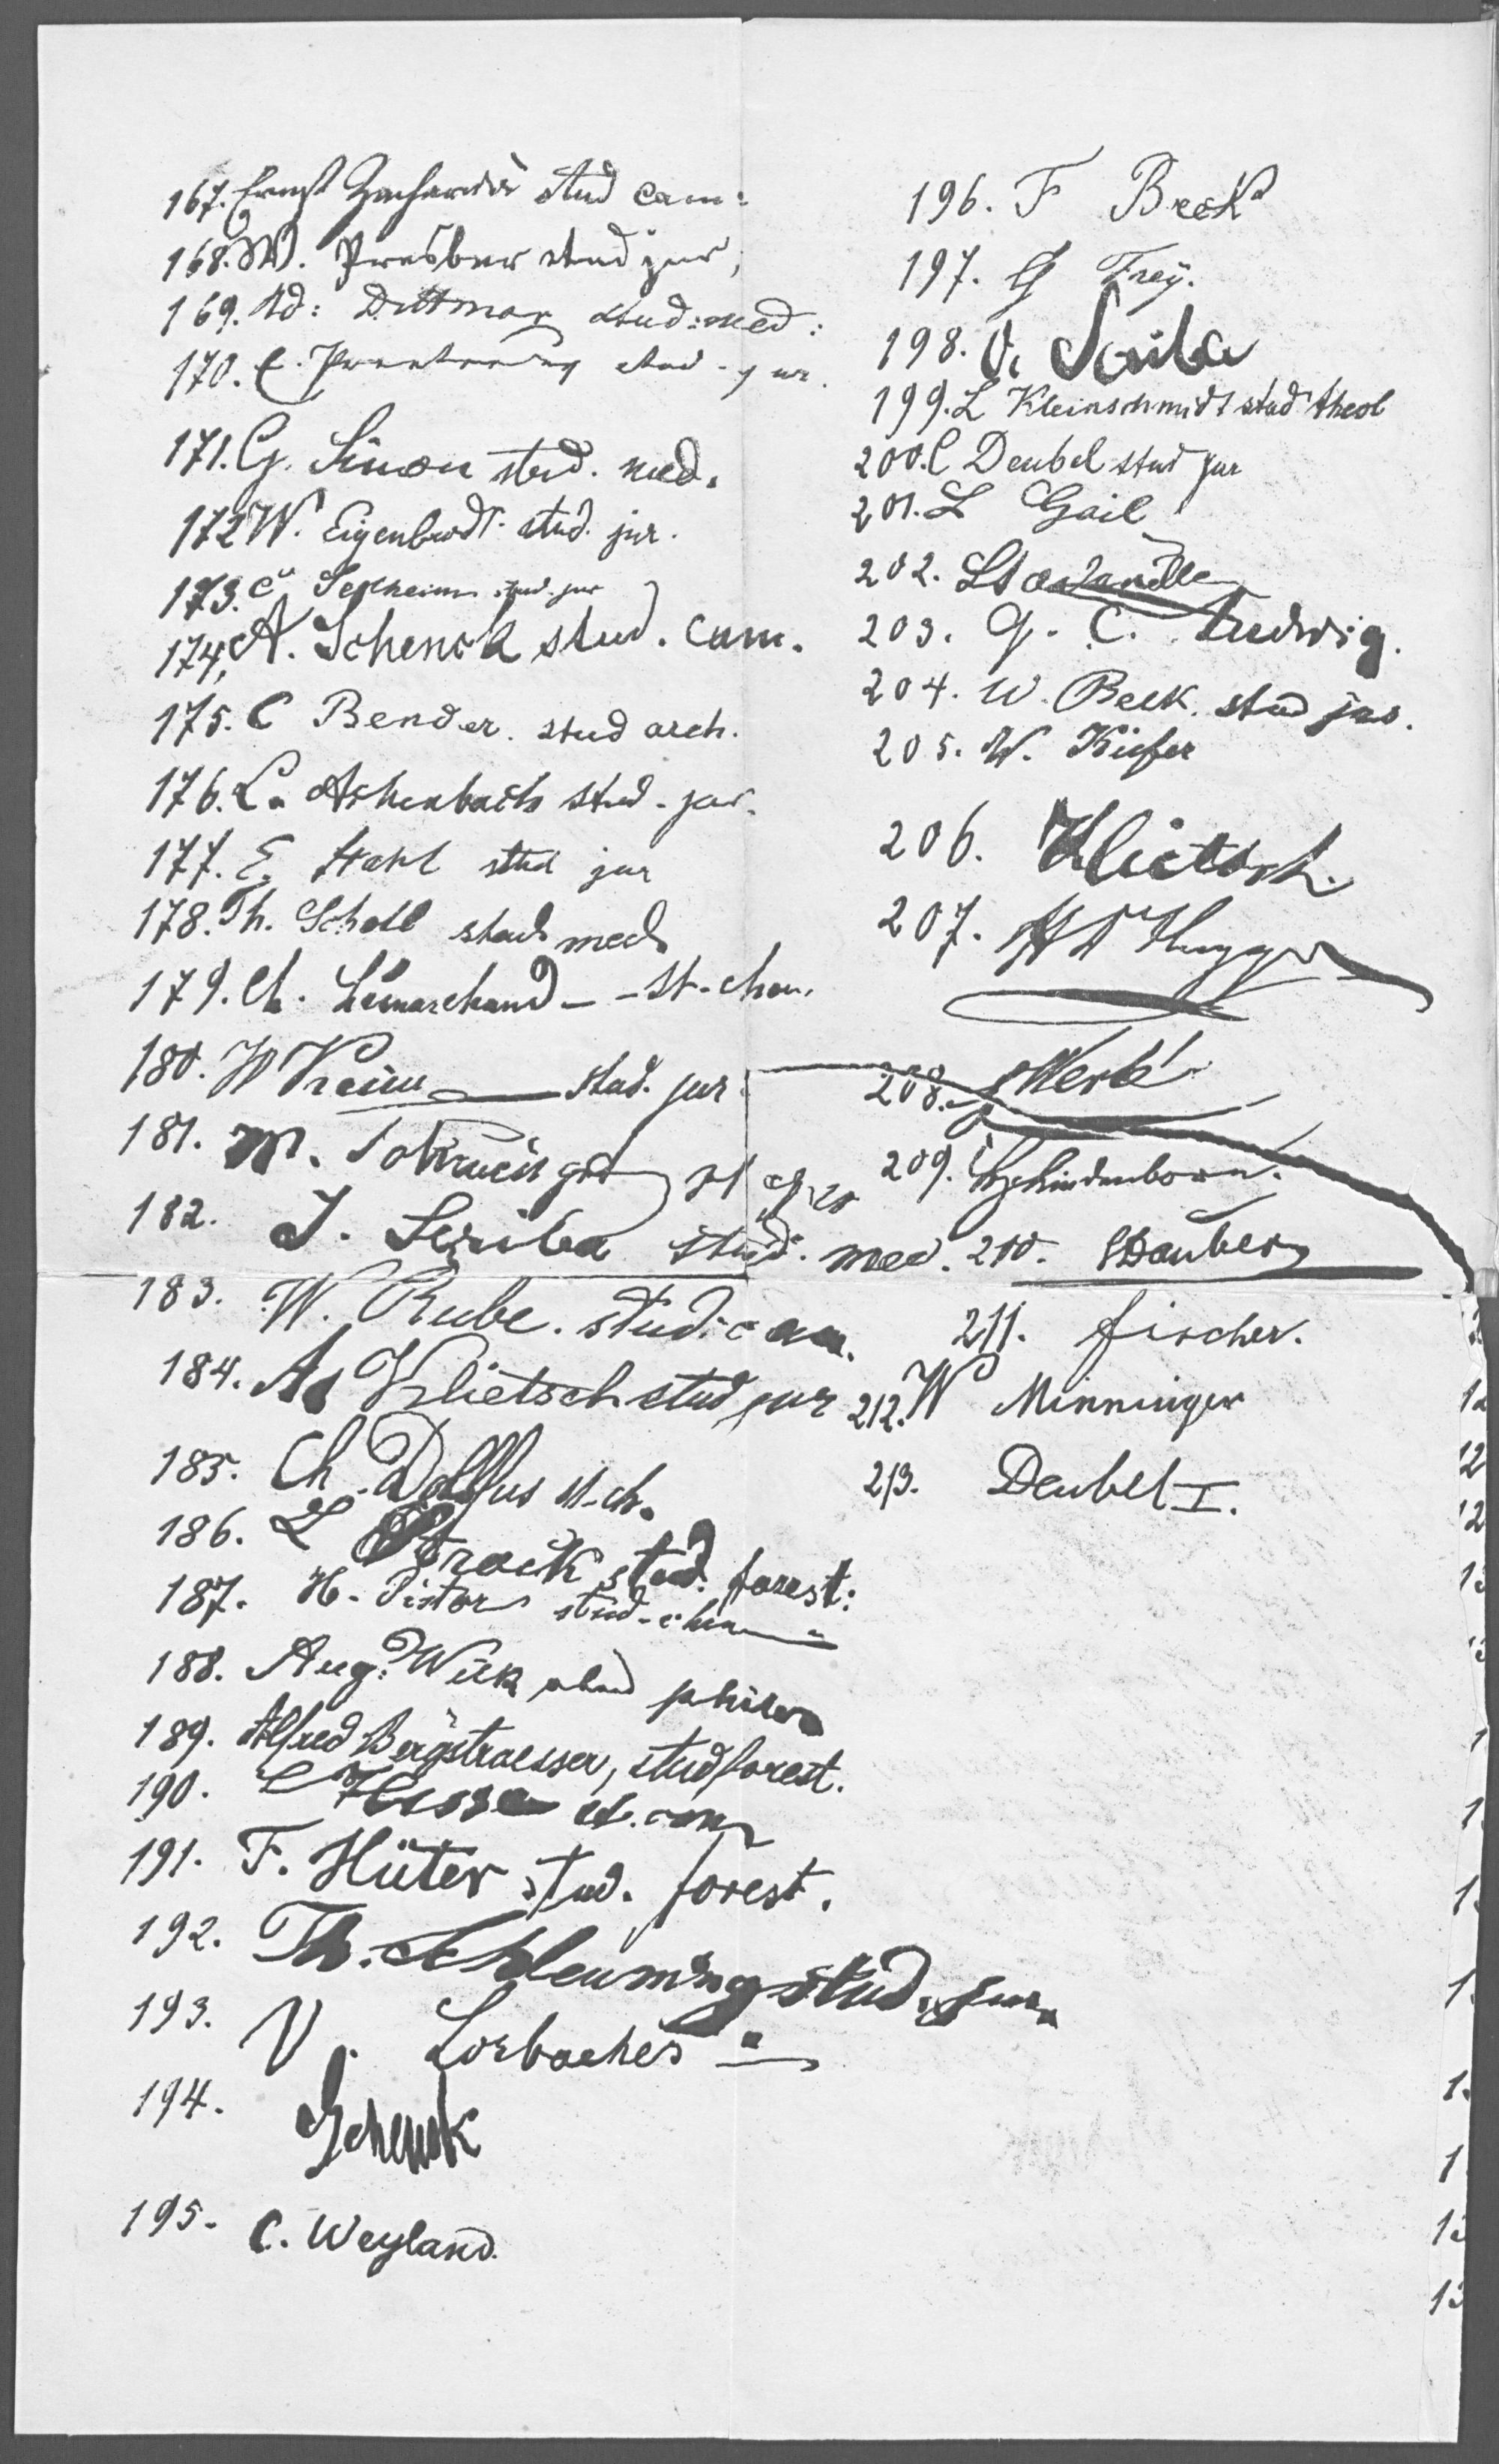 167. Ernst Zachariä stud cam:
168. W. Presber stud jur,
169. Ad: Dittmar stud: med:
170. E. stud. jur.
171. G. Simon stud. med.
172 W. Eigenbrodt stud. jur.
173. C. stud. jur
174, A. Schenck stud. cam.
175. C Bender. stud arch.
176. L. Achenbach stud. jur.
177. E. Hahl stud jur
178. Th. Scholl stud med
179. Ch. Lemarchand - - St. chem.
180. W Keim stud. jur.
181. M.
182. J. Scriba stud. med.
183. W. Rube. stud. cam.
184. A. Klietsch stud jur
185. Ch. Dollfus st. ch.
186. L Strack stud. forest:
187. H. Pistor stud. chem
188. Aug. Weik stud philos
189. Alfred Bergstraesser, stud forest.
190. C Hesse st. cam
191. F. Hüter stud. forest.
192. Th. Schleuning stud. jur.
193. V. Lorbacher
194. Schenck
195. C. Weyland.
196. F Beck
197. G Frey.
198. V. Scriba
199. L Kleinschmidt stud theol
200. C Deubel stud jur
201. L Gail
202.
203. G. C. Ludwig.
204. W. Beck. stud jur.
205. W. Kiefer
206. Klietsch.
207.
208. Merle
209. Schindenborn.
210. Dauber
211. fischer.
212. W Minninger
213. Deubel I.